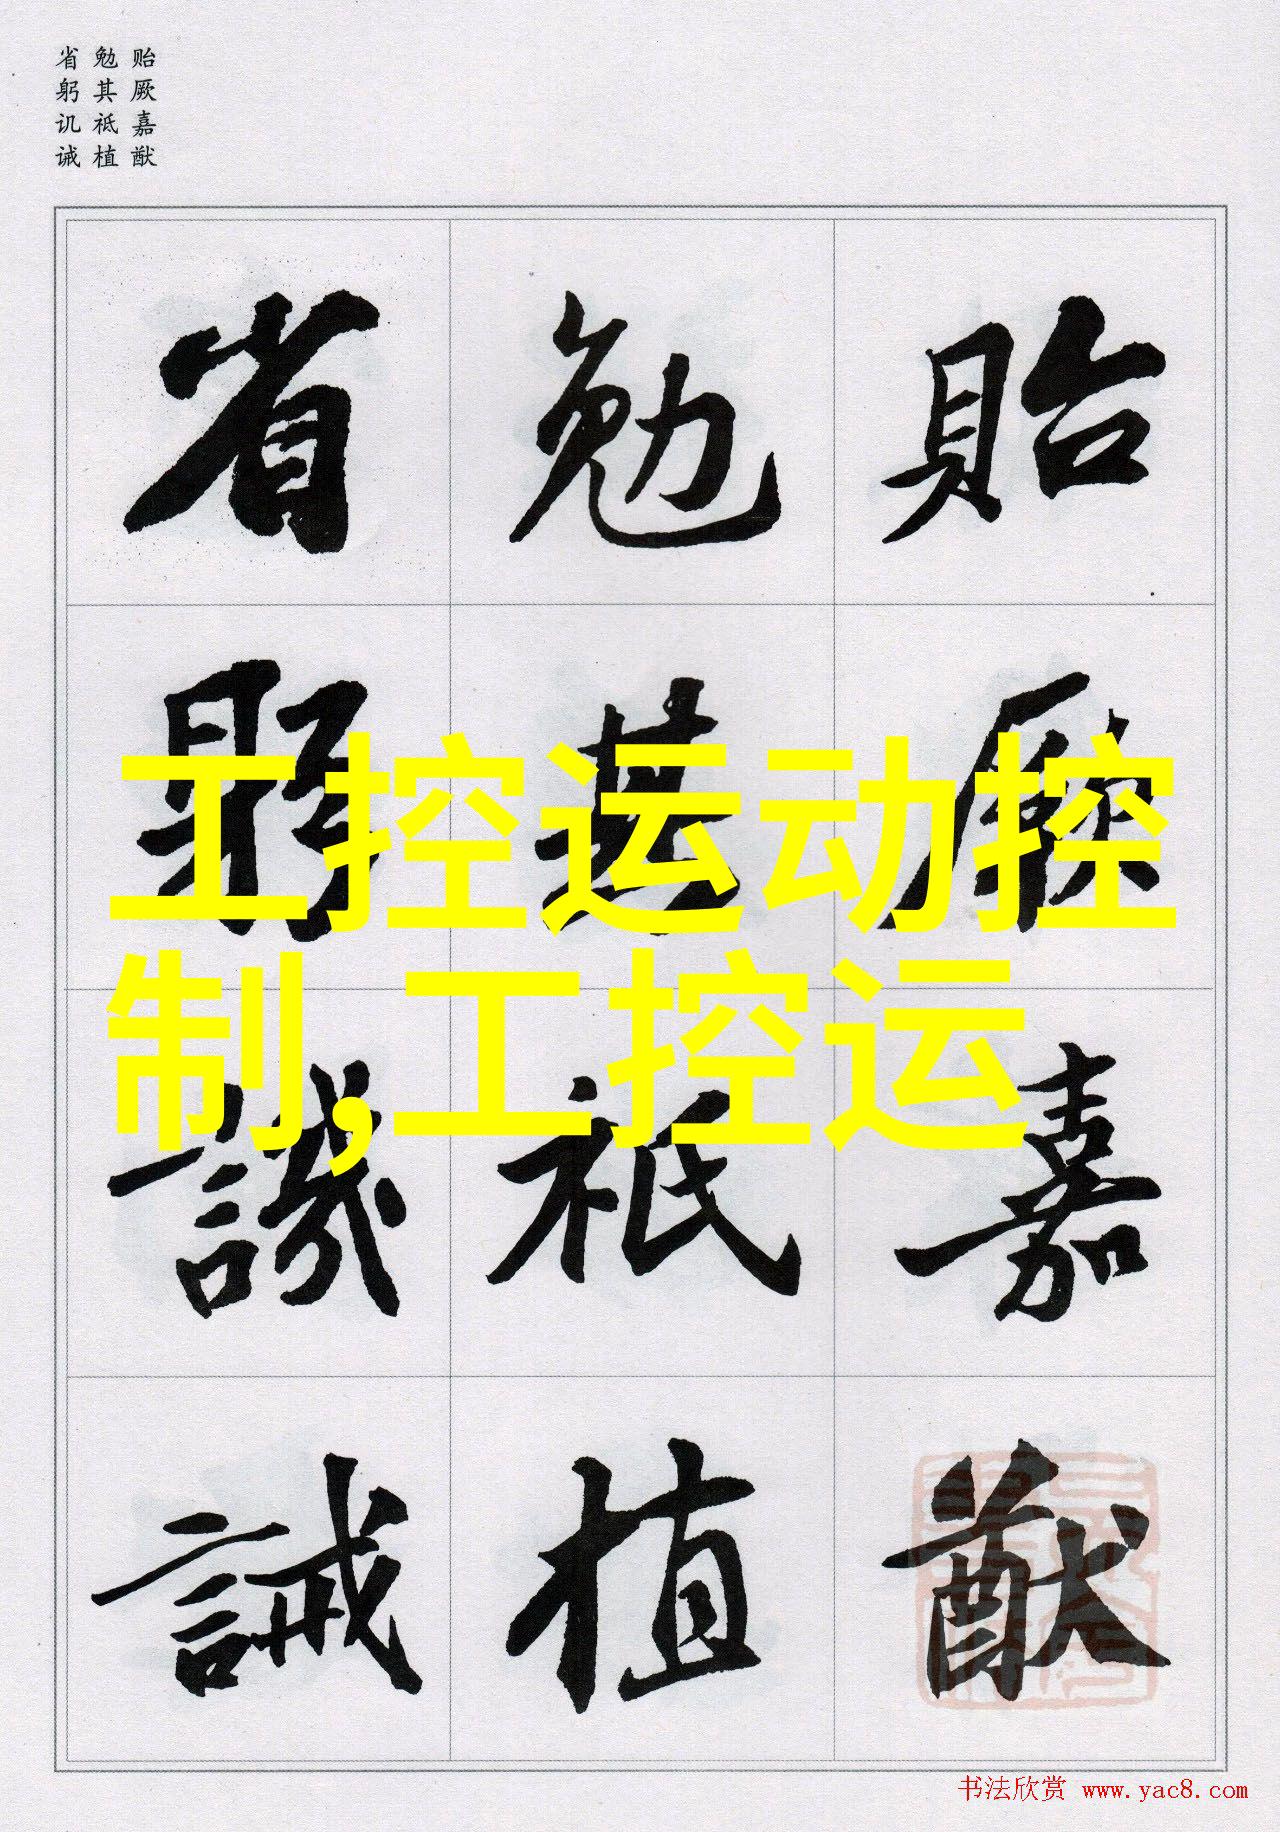 贻厥嘉猷
勉其祗植
省躬讥诫
貽厥嘉猷
勉其祗植
省躬譏誡
工控运动控
制,工控运
书法欣赏 www.yac8.com